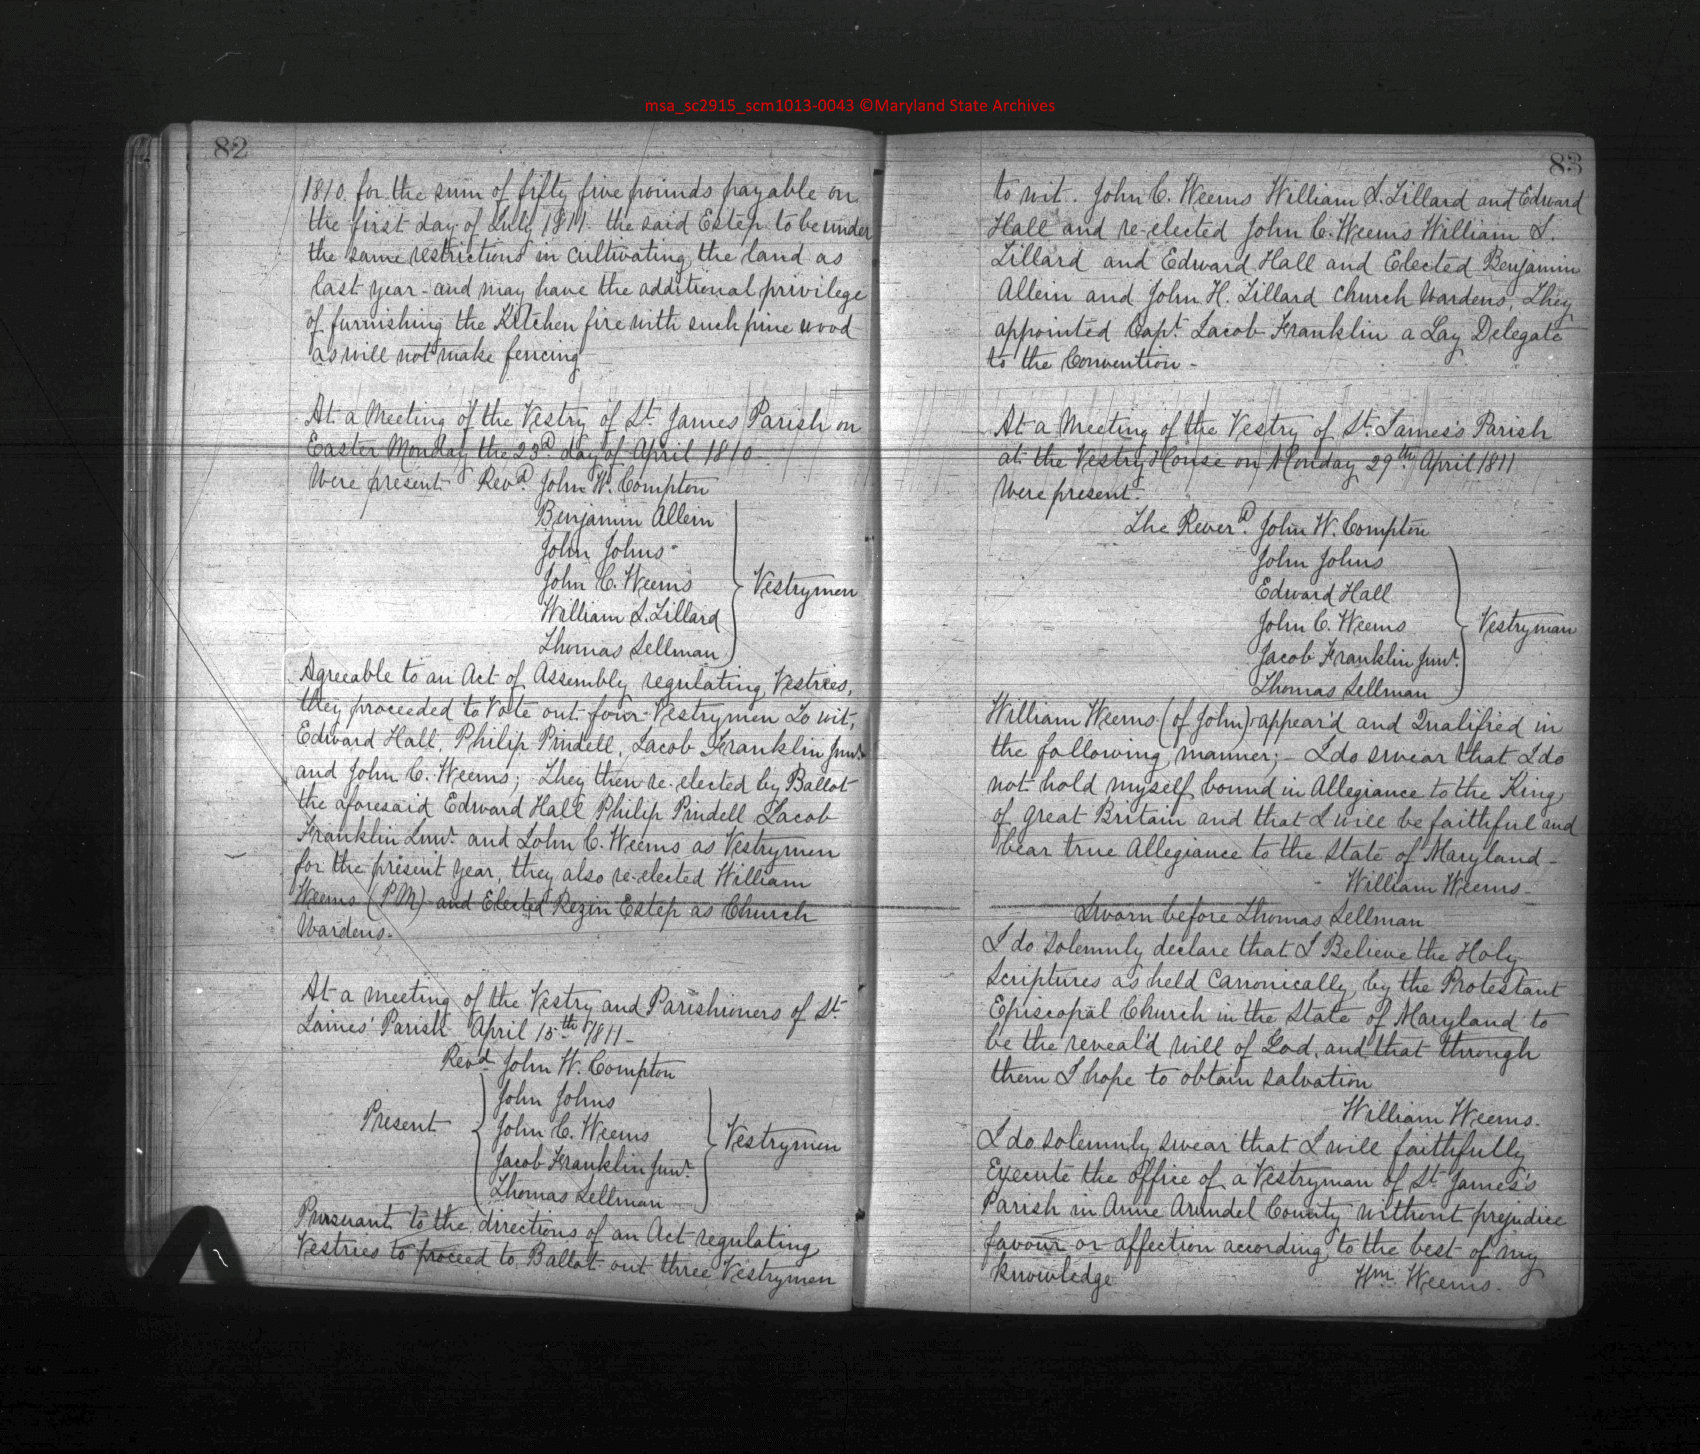 msa_sc2915_scm1013-0043 ©Maryland State Archives
82
1810 for the sum of fifty five pounds payable on
the first day of July 1811 the said Estep to be under
the same restrictions in cultivating the land as
last year - and may have the additional privilege
of furnishing the Kitchen fire with such pine wood
as will not make fencing
At a Meeting of the Vestry of St. James Parish on
Easter Monday the 23d day of April 1810 -
Were present Revd. John W. Compton
Benjamin Allein
John Johns
John C. Weems
William S. Lillard
Thomas Sellman
Vestrymen
Agreeable to an Act of Assembly regulating Vestries,
they proceeded to Vote out four Vestrymen To wit;
Edward Hall, Philip Pindell, Jacob Franklin Junr.
and John C. Weems; They then re-elected by Ballot
the aforesaid Edward Hall Philip Pindell Jacob
Franklin Junr. and John C. Weems as Vestrymen
for the present year, they also re-elected William
Weems (PM) and Elected Rezin Estep as Church
Wardens.
At a meeting of the Vestry and Parishioners of St.
James' Parish April 15th 1811 -
Revd. John W. Compton
Present
John Johns
John C. Weems
Jacob Franklin Junr.
Thomas Sellman
Vestrymen
Pursuant to the directions of an Act regulating
Vestries to proceed to Ballot out three Vestrymen
83
to wit. John C. Weems William S. Lillard and Edward
Hall and re-elected John C. Weems William S.
Lillard and Edward Hall and Elected Benjamin
Allein and John H. Lillard Church Wardens, They
appointed Capt. Jacob Franklin a Lay Delegate
to the Convention -
At a Meeting of the Vestry of St. James's Parish
at the Vestry House on Monday 29th April 1811
Were present -
The Reverd. John W. Compton
John Johns
Edward Hall
John C. Weems
Jacob Franklin Junr.
Thomas Sellman
Vestryman
William Weems (of John) appear'd and Qualified in
the following manner; - I do swear that I do
not hold myself bound in Allegiance to the King
of great Britain and that I will be faithful and
bear true Allegiance to the State of Maryland -
William Weems -
Sworn before Thomas Sellman
I do solemnly declare that I Believe the Holy
Scriptures as held Canonically by the Protestant
Episcopal Church in the State of Maryland to
be the reveal'd will of God, and that through
them I hope to obtain salvation
William Weems.
I do solemnly swear that I will faithfully
Execute the office of a Vestryman of St. James's
Parish in Anne Arundel County without prejudice
favour or affection according to the best of my
knowledge
Wm. Weems.